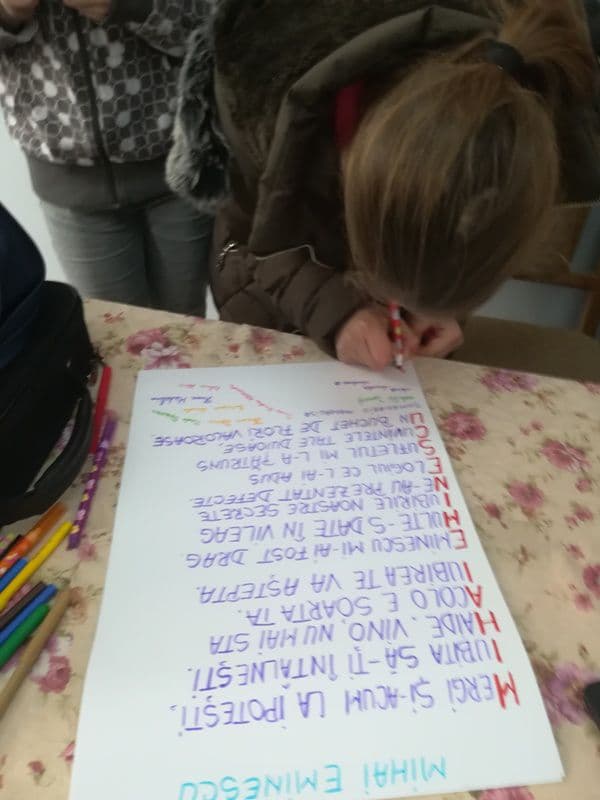 MIHAI EMINESCU
MERGI ȘI-ACUM LA IPOTEȘTI,
IUBITA SĂ-ȚI ÎNTALNEȘTI.
HAIDE, VINO, NU MAI STA
ACOLO E SOARTA TA.
IUBIREA TE VA AȘTEPTA.
EMINESCU MI-AI FOST DRAG.
MULTE-S DATE ÎN VILEAG
IUBIRILE NOASTRE SECRETE
NE-AU PREZENTAT DEFECTE.
ELOGIUL CE L-AI ADUS
SUFLETUL MI L-A PĂTRUNS
CUVINTELE TALE DUIOASE
UN BUCHET DE FLORI VALOROASE.